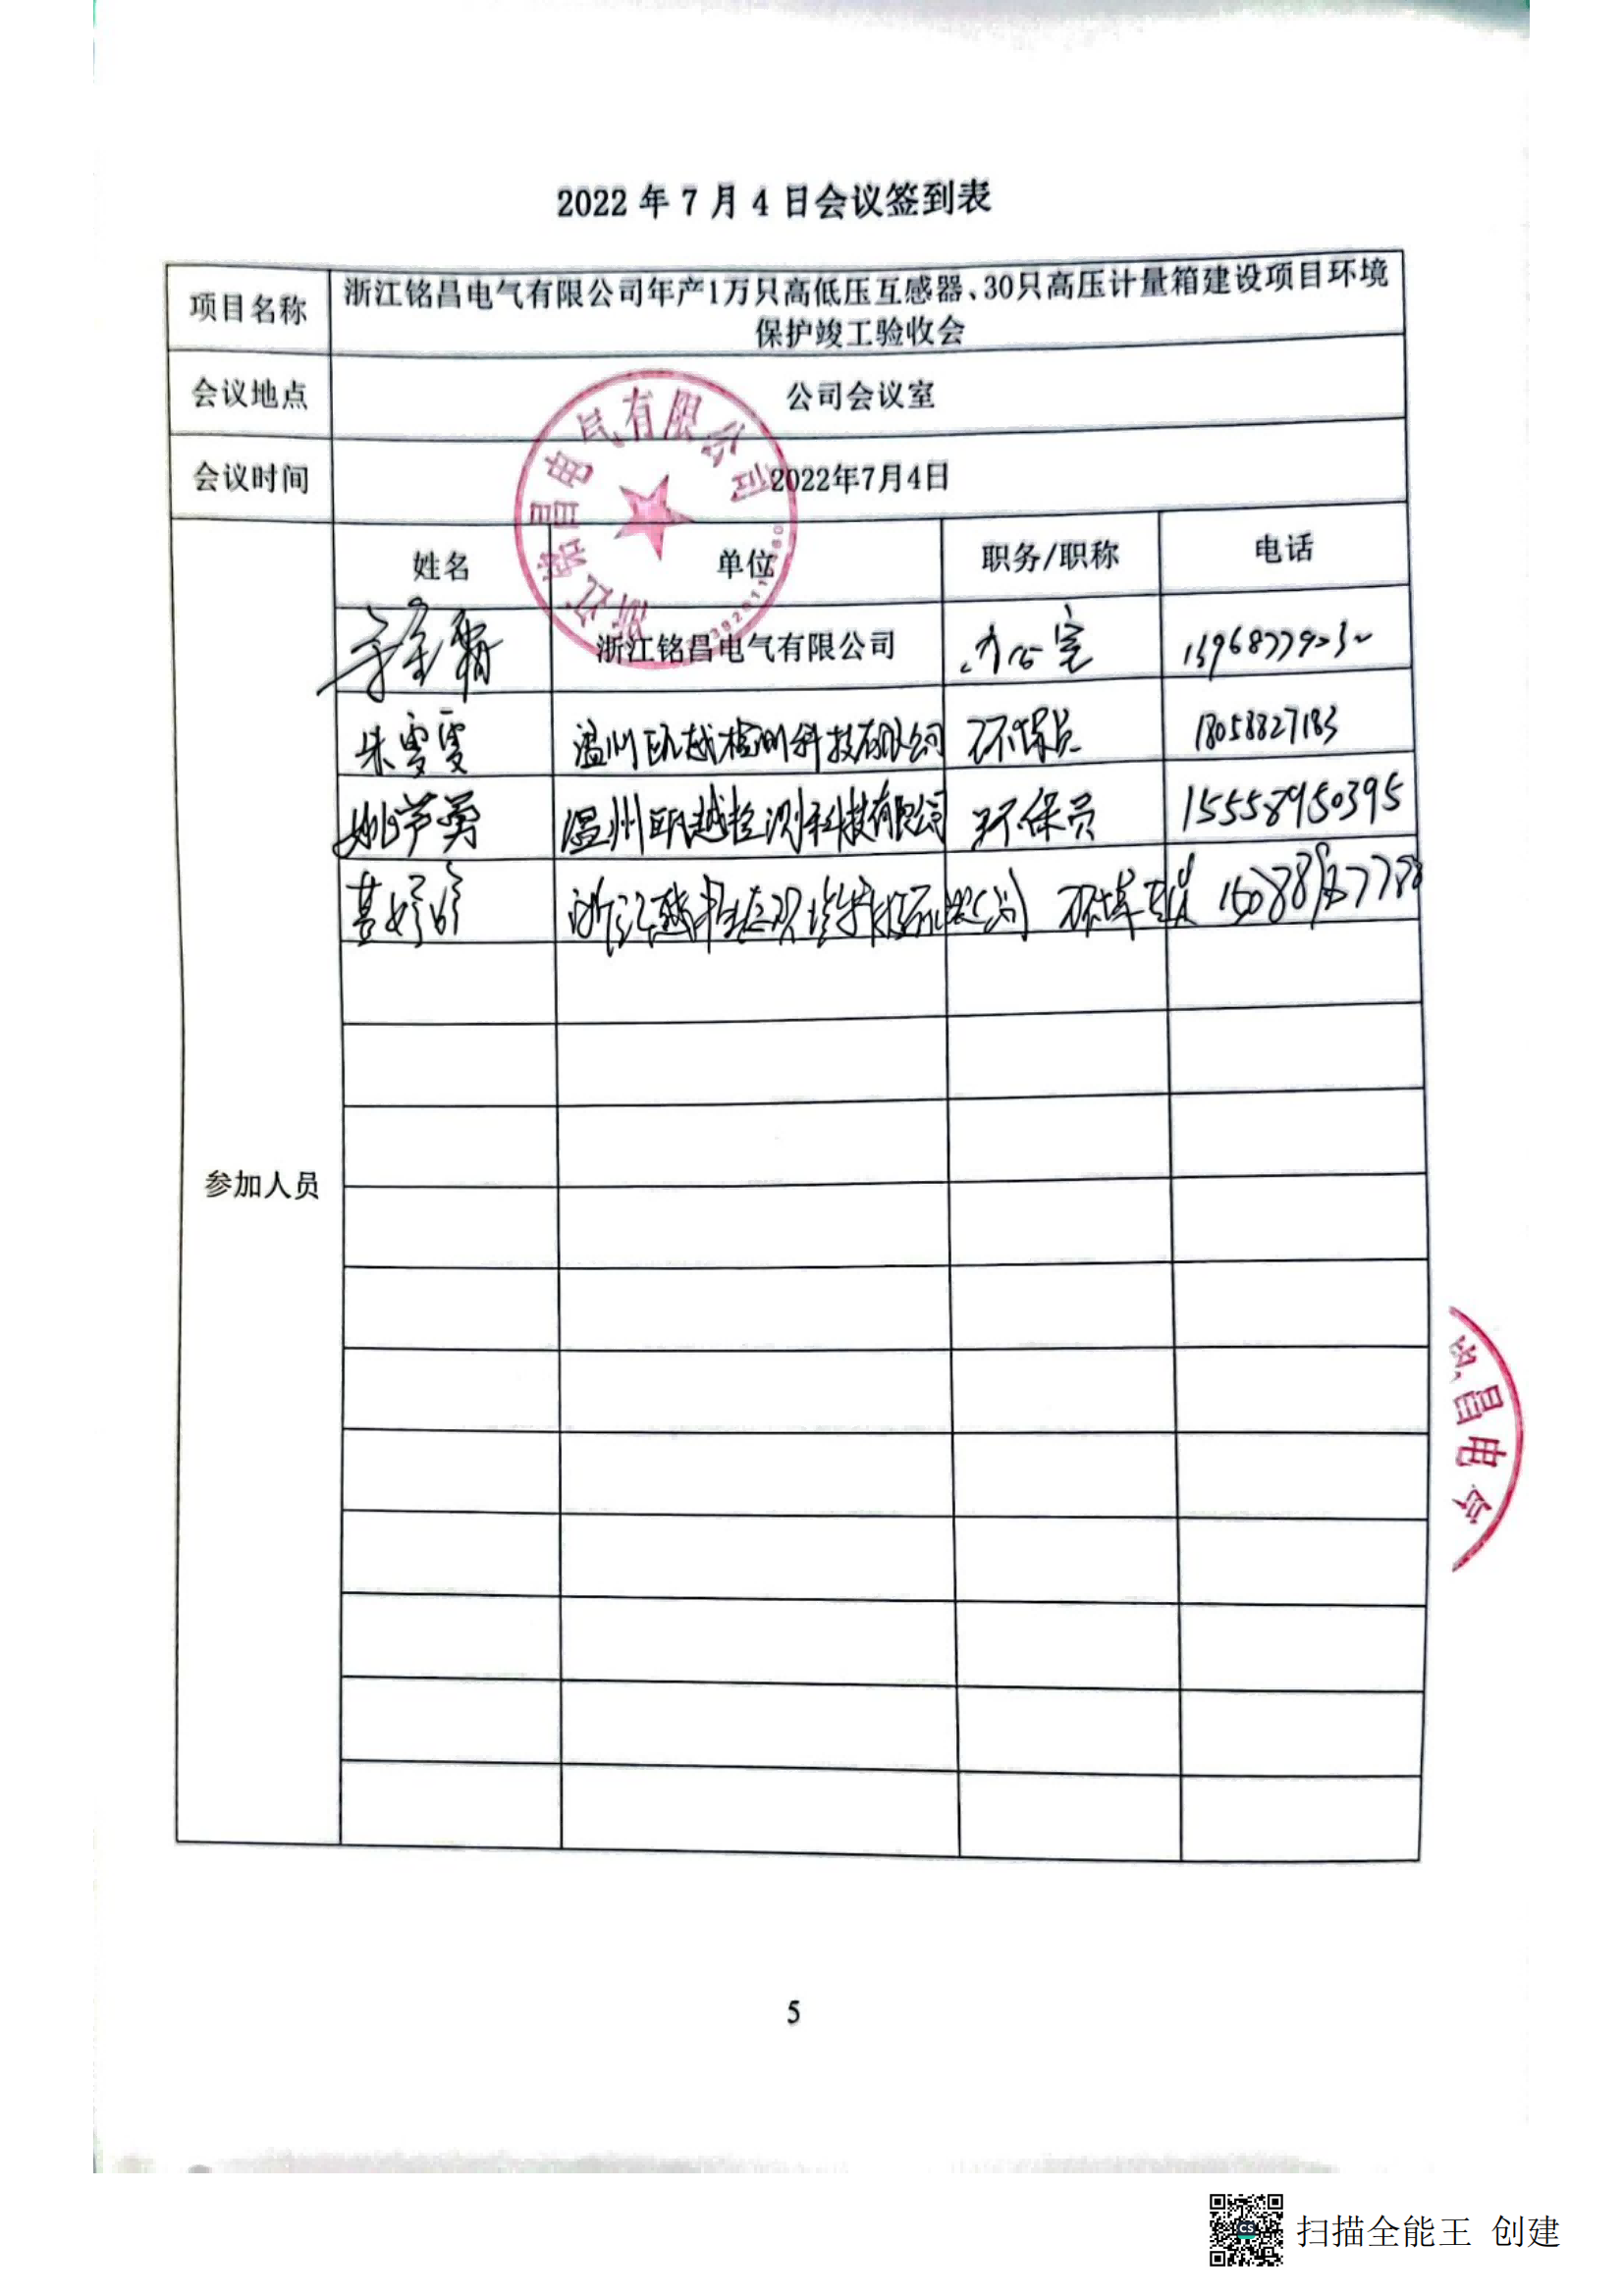 2022 年 7 月 4 日会议签到表
项目名称
浙江铭昌电气有限公司年产1万只高低压互感器、30只高压计量箱建设项目环境
保护竣工验收会
会议地点
公司会议室
会议时间
2022年7月4日
浙江铭昌电气有限公司
参加人员
姓名 单位 职务/职称 电话
浙江铭昌电气有限公司 办公室
朱雯雯 温州瓯越检测科技有限公司 环保员 18058827183
姚芦勇 温州瓯越检测科技有限公司 环保员 15558950395
昌电
5
扫描全能王 创建